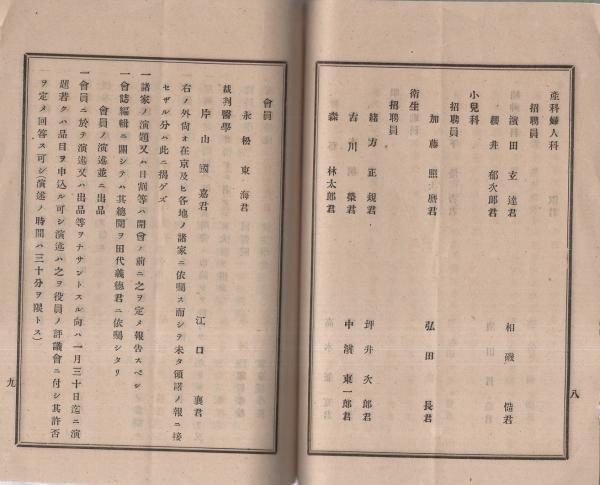 産科婦人科
招聘員
濱田玄達君 相磯慥君
櫻井郁次郎君
小兒科
招聘員
加藤照麿君 弘田長君
衞生
招聘員
緒方正規君 坪井次郎君
古川榮君 中濱東一郎君
森林太郎君
八
會員
永松東海君
裁判醫學
片山國嘉君 江口襄君
右ノ外尙在京及ヒ各地ノ諸家ニ依囑ス而シテ未タ領諾ノ報ニ接
セザル分ハ此ニ揭ゲズ
一諸家ノ演題又ハ日割等ハ開會ノ前ニ之ヲ定メ報告スベシ
一會誌編輯ニ關シテハ其總閱ヲ田代義德君ニ依囑シタリ
會員ノ演述並ニ出品
一會員ニ於テ演述又ハ出品等ヲナサントスル向ハ一月三十日迄ニ演
題若クハ品目ヲ申込ル可シ演述ハ之ヲ役員ノ評議會ニ付シ其許否
ヲ定メ回答ス可シ(演述ノ時間ハ三十分ヲ限トス)
九